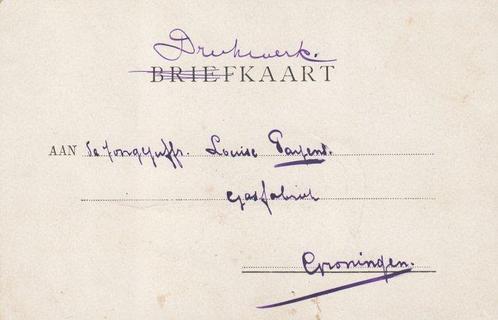 Drukwerk.
BRIEFKAART
AAN de Jongejuffr. Louise Payens.
Gasfabriek
Groningen.